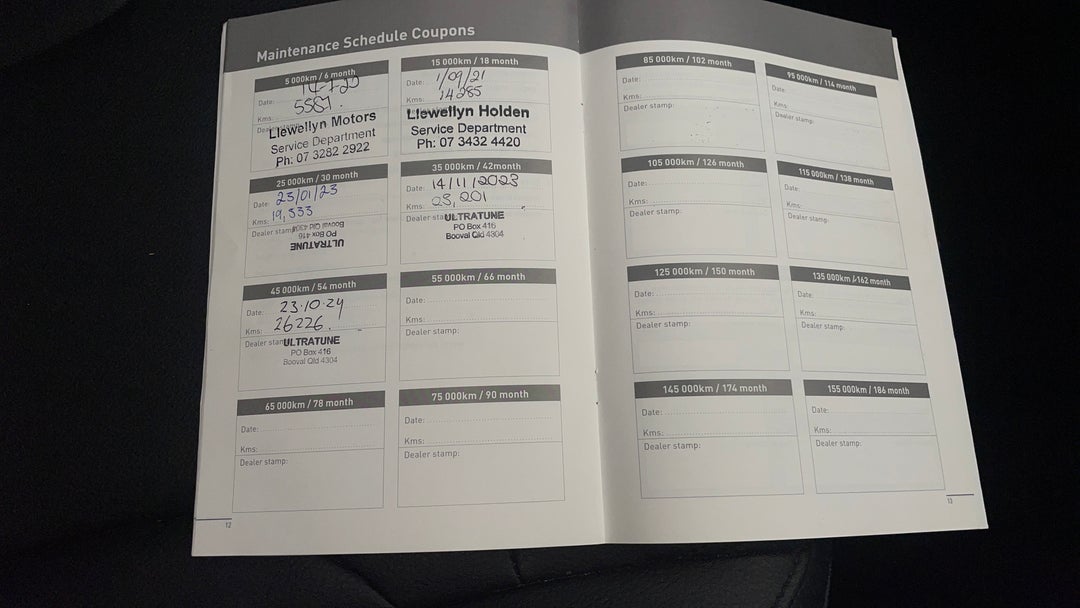 Maintenance Schedule Coupons
5 000km / 6 month
Date:
Kms: 5581.
Llewellyn Motors
Service Department
Ph: 07 3282 2922
15 000km / 18 month
Date: 1/09/21
Kms: 14285
Llewellyn Holden
Service Department
Ph: 07 3432 4420
25 000km / 30 month
Date: 23/01/23
Kms: 19,333
Dealer stamp:
ULTRATUNE
PO Box 416
Booval Qld 4304
35 000km / 42month
Date: 14/11/2023
Kms: 201
Dealer sta
ULTRATUNE
PO Box 416
Booval Qld 4304
45 000km / 54 month
Date: 23.10.24
Kms: 26226.
Dealer stam
ULTRATUNE
PO Box 416
Booval Qld 4304
55 000km / 66 month
Date:
Kms:
Dealer stamp:
65 000km / 78 month
Date:
Kms:
Dealer stamp:
75 000km / 90 month
Date:
Kms:
Dealer stamp:
12
85 000km / 102 month
Date:
Kms:
Dealer stamp:
95 000km / 114 month
Date:
Kms:
Dealer stamp:
105 000km / 126 month
Date:
Kms:
Dealer stamp:
115 000km / 138 month
Date:
Kms:
Dealer stamp:
125 000km / 150 month
Date:
Kms:
Dealer stamp:
135 000km / 162 month
Date:
Kms:
Dealer stamp:
145 000km / 174 month
Date:
Kms:
Dealer stamp:
155 000km / 186 month
Date:
Kms:
Dealer stamp:
13